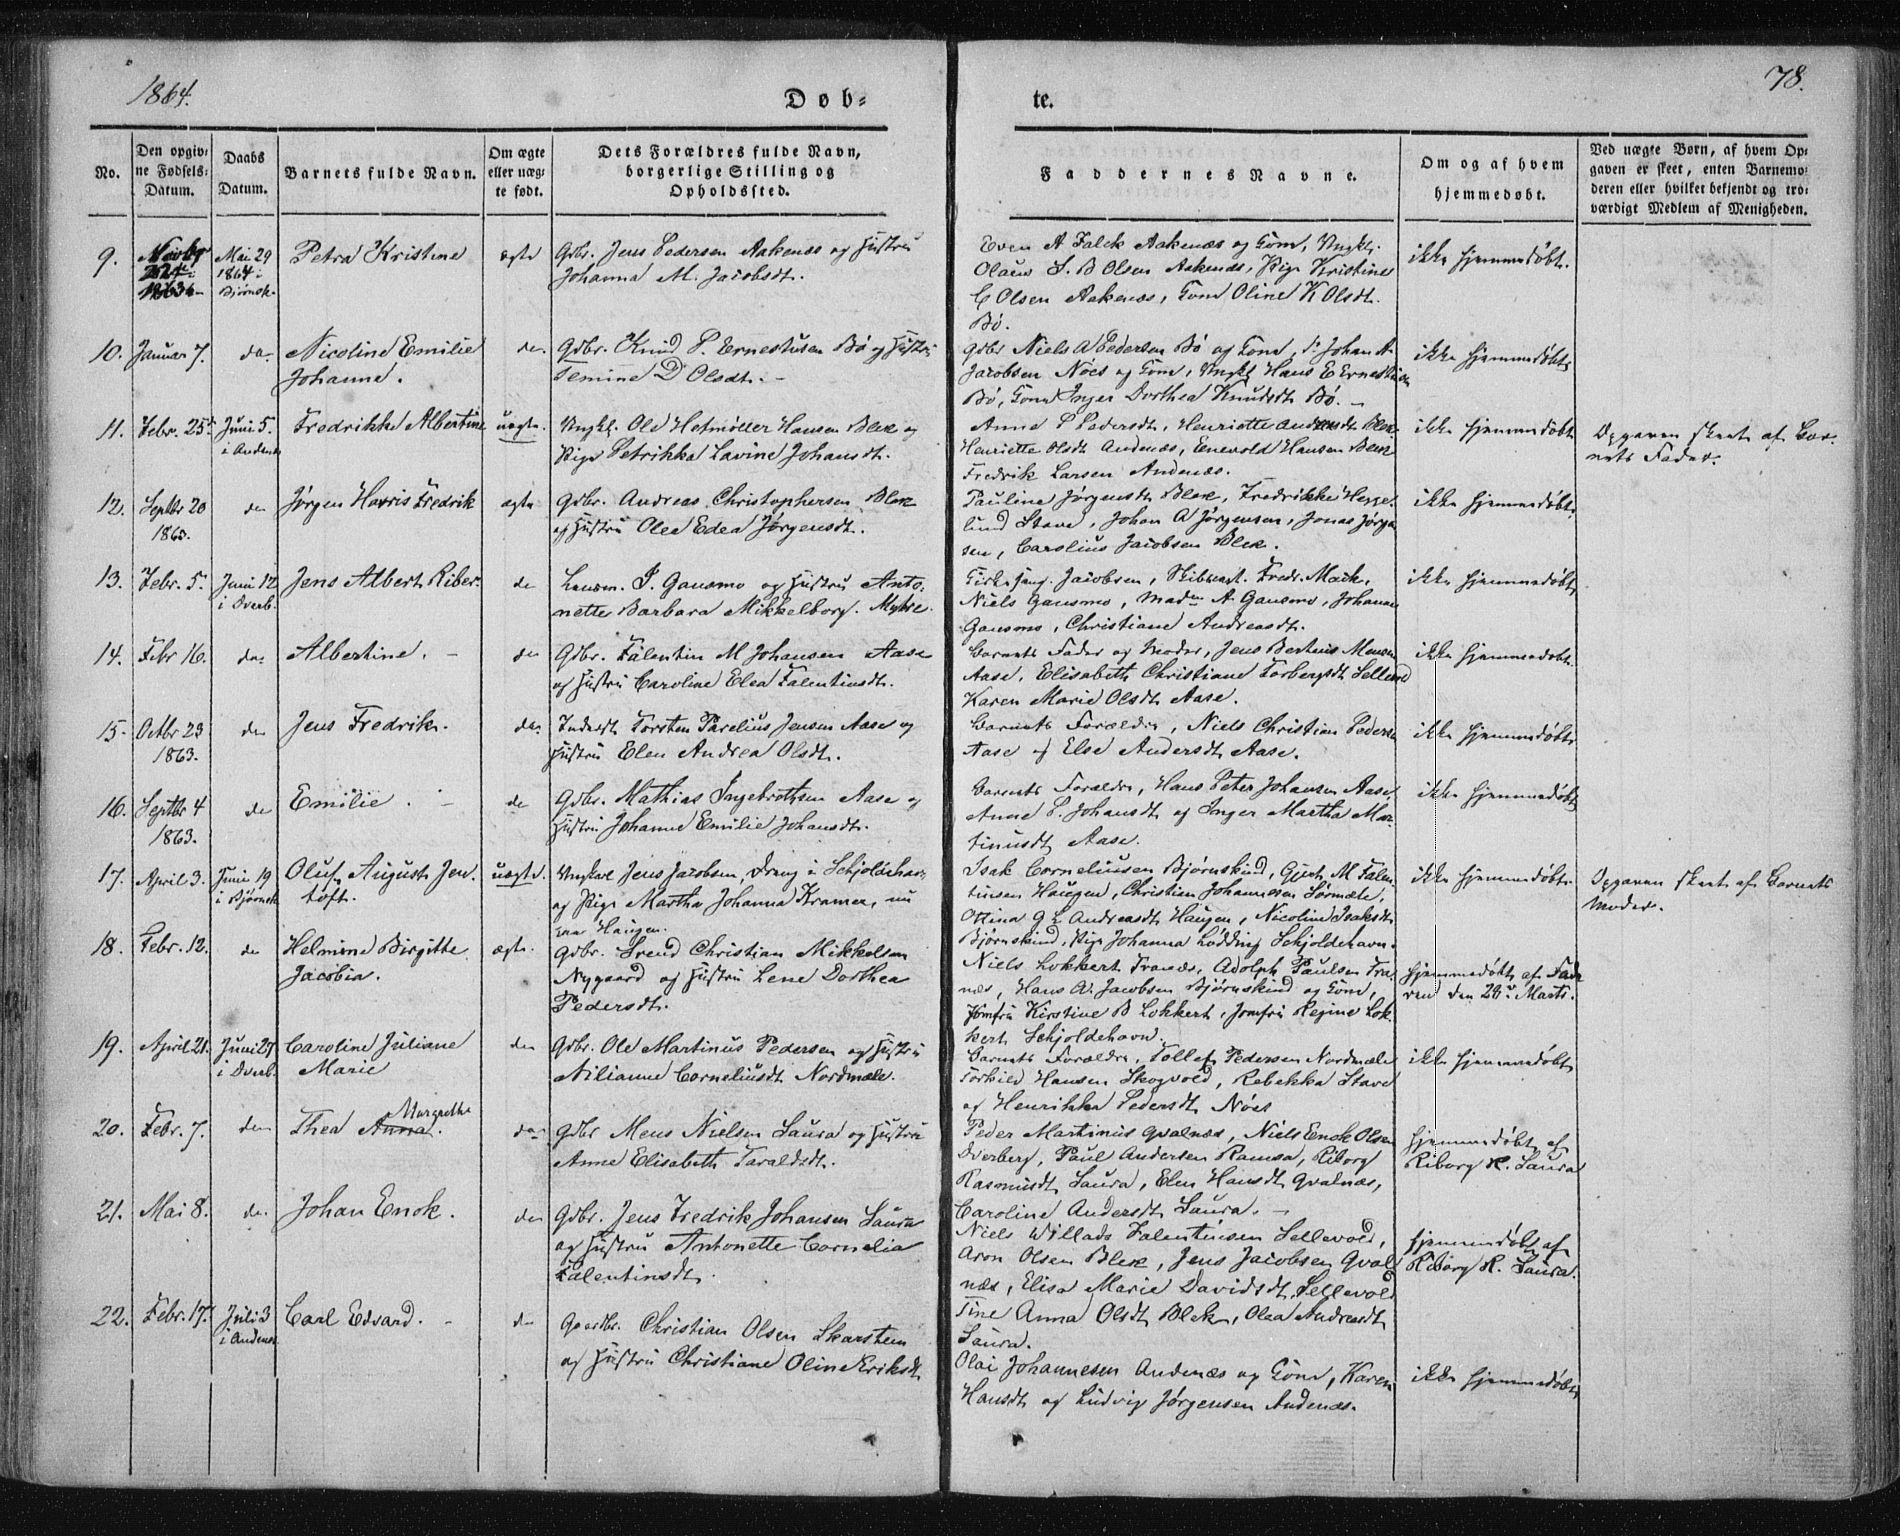 1864.
78.
Døb-
te.
No.
Den opgiv-
ne Fødsels-
Datum.
Daabs
Datum.
Barnets fulde Navn.
Om ægte
eller uæg-
te født.
Dets Forældres fulde Navn,
borgerlige Stilling og
Opholdssted.
Faddernes Navne.
Om og af hvem
hjemmedøbt.
Ved uægte Børn, af hvem Op-
gaven er skeet, enten Barnemo-
deren eller hvilket bekjendt og tro-
værdigt Medlem af Menigheden.
9.
1863
Mai 29
1864
Bjørnsk.
Petra Kristine
ægte
Gdbr. Jens Pedersen Aakenæs og Hustru
Johanna M. Jacobsdt.
Even A Falck Aakenæs og Cone, Ungkl.
Olaus S. B Olsen Aakenæs, Pige Kristine
C Olsen Aakenæs, Cone Oline K Olsdt.
Bø.
ikke hjemmedøbt.
10.
Januar 7.
do.
Nicoline Emilie
Johanna.
do.
Gdbr. Knud P. Ernestusen Bø og Hustru
Jemine D Olsdt. -
Gdbr Niels A Pedersen Bø og Cone, do Johan A.
Jacobsen Nöes og Cone, Ungkl Hans E Ernestusen
Bø, Cone Inger Dorthea Knudsdt Bø. -
ikke hjemmedøbt
11.
Febr. 25.
Juni 5.
i Andenæs
Fredrikke Albertine
uægte.
Ungkl. Ole Hetmöller Hansen Blek og
Pige Petrikka Lavine Johansdt.
Anne P Pedersdt, Henriette Andersdt Blek
Henriette Olsdt Andenæs, Enevold Hansen Blek
Fredrik Larsen Andenæs.
ikke hjemmedøbt
Opgaven skeet af Bar-
nets Fader.
12.
Septbr 20
1863.
do
Jørgen Harris Fredrik
ægte
Gdbr. Andreas Christophersen Blek
og Hustru Olea Edea Jørgensdt.
Pauline Jørgensdt Blek, Fredrikke Hegge-
lund Stave, Johan A Jørgensen, Jonas Jørgen-
sen, Carolius Jacobsen Blek.
ikke hjemmedøbt.
13.
Febr. 5.
Juni 12
i Dverb.
Jens Albert Riber.
do
Lensm. J. Gausmo og Hustru Anto-
nette Barbara Mikkelborg. Myhre.
Kirkesang. Jacobsen, Skibsexp. Fredr. Mack,
Niels Gausmo, Madm A. Gausmo, Johanne
Gausmo, Christiane Andreasdt.
ikke hjemmedøbt
14.
Febr 16.
do.
Albertine. -
do
Gdbr. Falentin M Johansen Aase
og Hustru Caroline Elea Falentinsdt.
Barnets Fader og Moder, Jens Bertius Monsen
Aase, Elisabeth Christiane Torbergsdt Sellevold
Karen Marie Olsdt Aase.
ikke hjemmedøbt.
15.
Octbr 23
1863.
do
Jens Fredrik.
do.
Inderst Torsten Parelius Jensen Aase og
Hustru Elen Andrea Olsdt.
Barnets Forældre, Niels Christian Pedersen
Aase og Else Andersdt Aase.
ikke hjemmedøbt
16.
Septbr 4
1863.
do
Emilie. -
do
Gdbr. Mathias Ingebrothsen Aase og
Hustru Johanne Emilie Johansdt.
Barnets Forældre, Hans Peter Johansen Aase,
Anne P. Johansdt og Inger Martha Mar-
tinusdt Aase.
ikke hjemmedøbt
17.
April 3.
Juni 19
i Bjørnsk
Oluf August Jen-
toft.
uægte.
Ungkarl Jens Jacobsen, Dreng i Schjoldehavn
og Pige Martha Johanna Kramer, nu
paa Haugen.
Isak Corneliusen Bjørnskind, Gjert M Falen-
tinsen Haugen, Christian Johannesen Sørmæle,
Ottina G L Andreasdt Haugen, Nicoline Isaksdt
Bjørnskind, Pige Johanna Lødding Schjoldehavn.
ikke hjemmedøbt.
Opgaven skeet af Barnets
Moder.
18.
Febr. 12.
do
Helmine Birgitte
Jacobia.
ægte.
Gdbr. Svend Christian Mikkelsen
Nygaard og Hustru Lene Dorthea
Pedersdt.
Niels Lokkert Franæs, Adolph Paulsen Fra-
næs, Hans A. Jacobsen Bjørnskind og Cone,
Jomfru Kirstine B Lokkert, Jomfru Regine Lok-
kert Schjoldehavn.
hjemmedøbt af Fade-
ren den 28de Marts.
19.
April 21.
Juni 27
i Dverb.
Caroline Juliane
Marie
do
Gdbr. Ole Martinus Pedersen og Hustru
Nilianne Corneliusdt Nordmæle.
Barnets Forældre, Tollef Pedersen Nordmæle
Torkild Hansen Skogvold, Rebekka Stave
og Henrikka Pedersdt Nöes
ikke hjemmedøbt
20.
Febr. 7.
do
Margrethe
Thea Anna.
do
Gdbr Mens Nielsen Saura og Hustru
Anne Elisabeth Taraldsdt.
Peder Martinus Qvalnæs, Niels Enok Olsen
Dverberg, Paul Andersen Ramsa, Riborg
Rasmusdt Saura, Elen Hansdt Qvalnæs,
Caroline Andersdt Saura. -
hjemmedøbt af
Riborg R. Saura
21.
Mai 8.
do
Johan Enok.
do
Gdbr. Jens Fredrik Johansen Saura
og Hustru Antonette Cornelia
Falentinsdt.
Niels Willads Falentinsen Sellevold,
Aron Olsen Blek, Jens Jacobsen Qval-
næs, Elisa Marie Davidsdt Sellevold
Tine Anna Olsdt Blek, Olea Andreasdt
Saura.
hjemmedøbt af
Riborg R. Saura.
22.
Febr. 17.
Juli 3
i Andenæs
Carl Edvard. -
do
Gaardbr. Christian Olsen Skarstein
og Hustru Christiane Oline Eriksdt
Olai Johannesen Andenæs og Cone, Karen
Hansdt og Ludvig Jørgensen Andenæs.
ikke hjemmedøbt